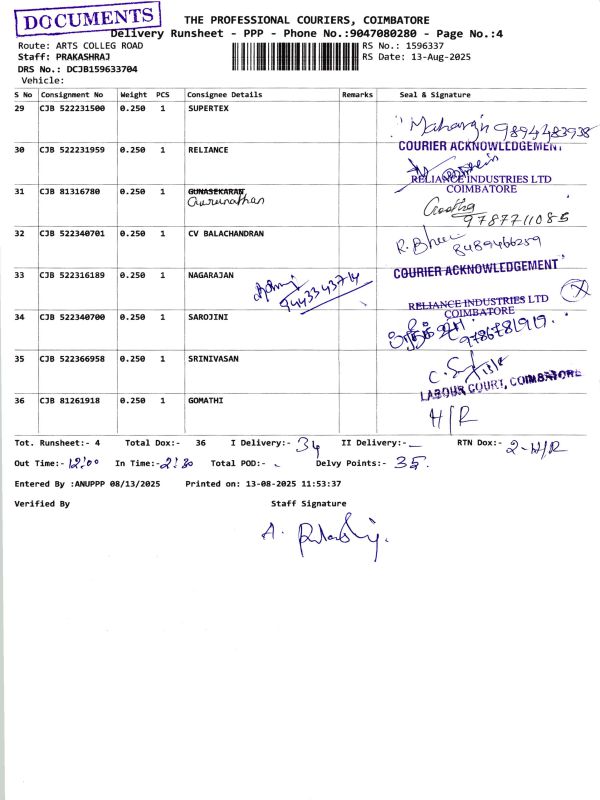 DOCUMENTS
THE PROFESSIONAL COURIERS, COIMBATORE
Delivery Runsheet - PPP - Phone No.:9047080280 - Page No.:4
Route: ARTS COLLEG ROAD
RS No.: 1596337
Staff: PRAKASHRAJ
RS Date: 13-Aug-2025
DRS No.: DCJB159633704
Vehicle:
S No Consignment No Weight PCS Consignee Details Remarks Seal & Signature
29 CJB 522231500 0.250 1 SUPERTEX
9894483938
30 CJB 522231959 0.250 1 RELIANCE
COURIER ACKNOWLEDGEMENT
RELIANCE INDUSTRIES LTD
COIMBATORE
31 CJB 81316780 0.250 1 GUNASEKARAN
Gurunathan
9787711085
32 CJB 522340701 0.250 1 CV BALACHANDRAN
8489466259
33 CJB 522316189 0.250 1 NAGARAJAN
9443343714
COURIER ACKNOWLEDGEMENT
RELIANCE INDUSTRIES LTD
COIMBATORE
34 CJB 522340700 0.250 1 SAROJINI
9786781919.
35 CJB 522366958 0.250 1 SRINIVASAN
LABOUR COURT, COIMBATORE
36 CJB 81261918 0.250 1 GOMATHI
H/R
Tot. Runsheet:- 4 Total Dox:- 36 I Delivery:- 34 II Delivery:- - RTN Dox:- 2-H/R
Out Time:- 12:00 In Time:- 2:30 Total POD:- - Delvy Points:- 35.
Entered By :ANUPPP 08/13/2025 Printed on: 13-08-2025 11:53:37
Verified By Staff Signature